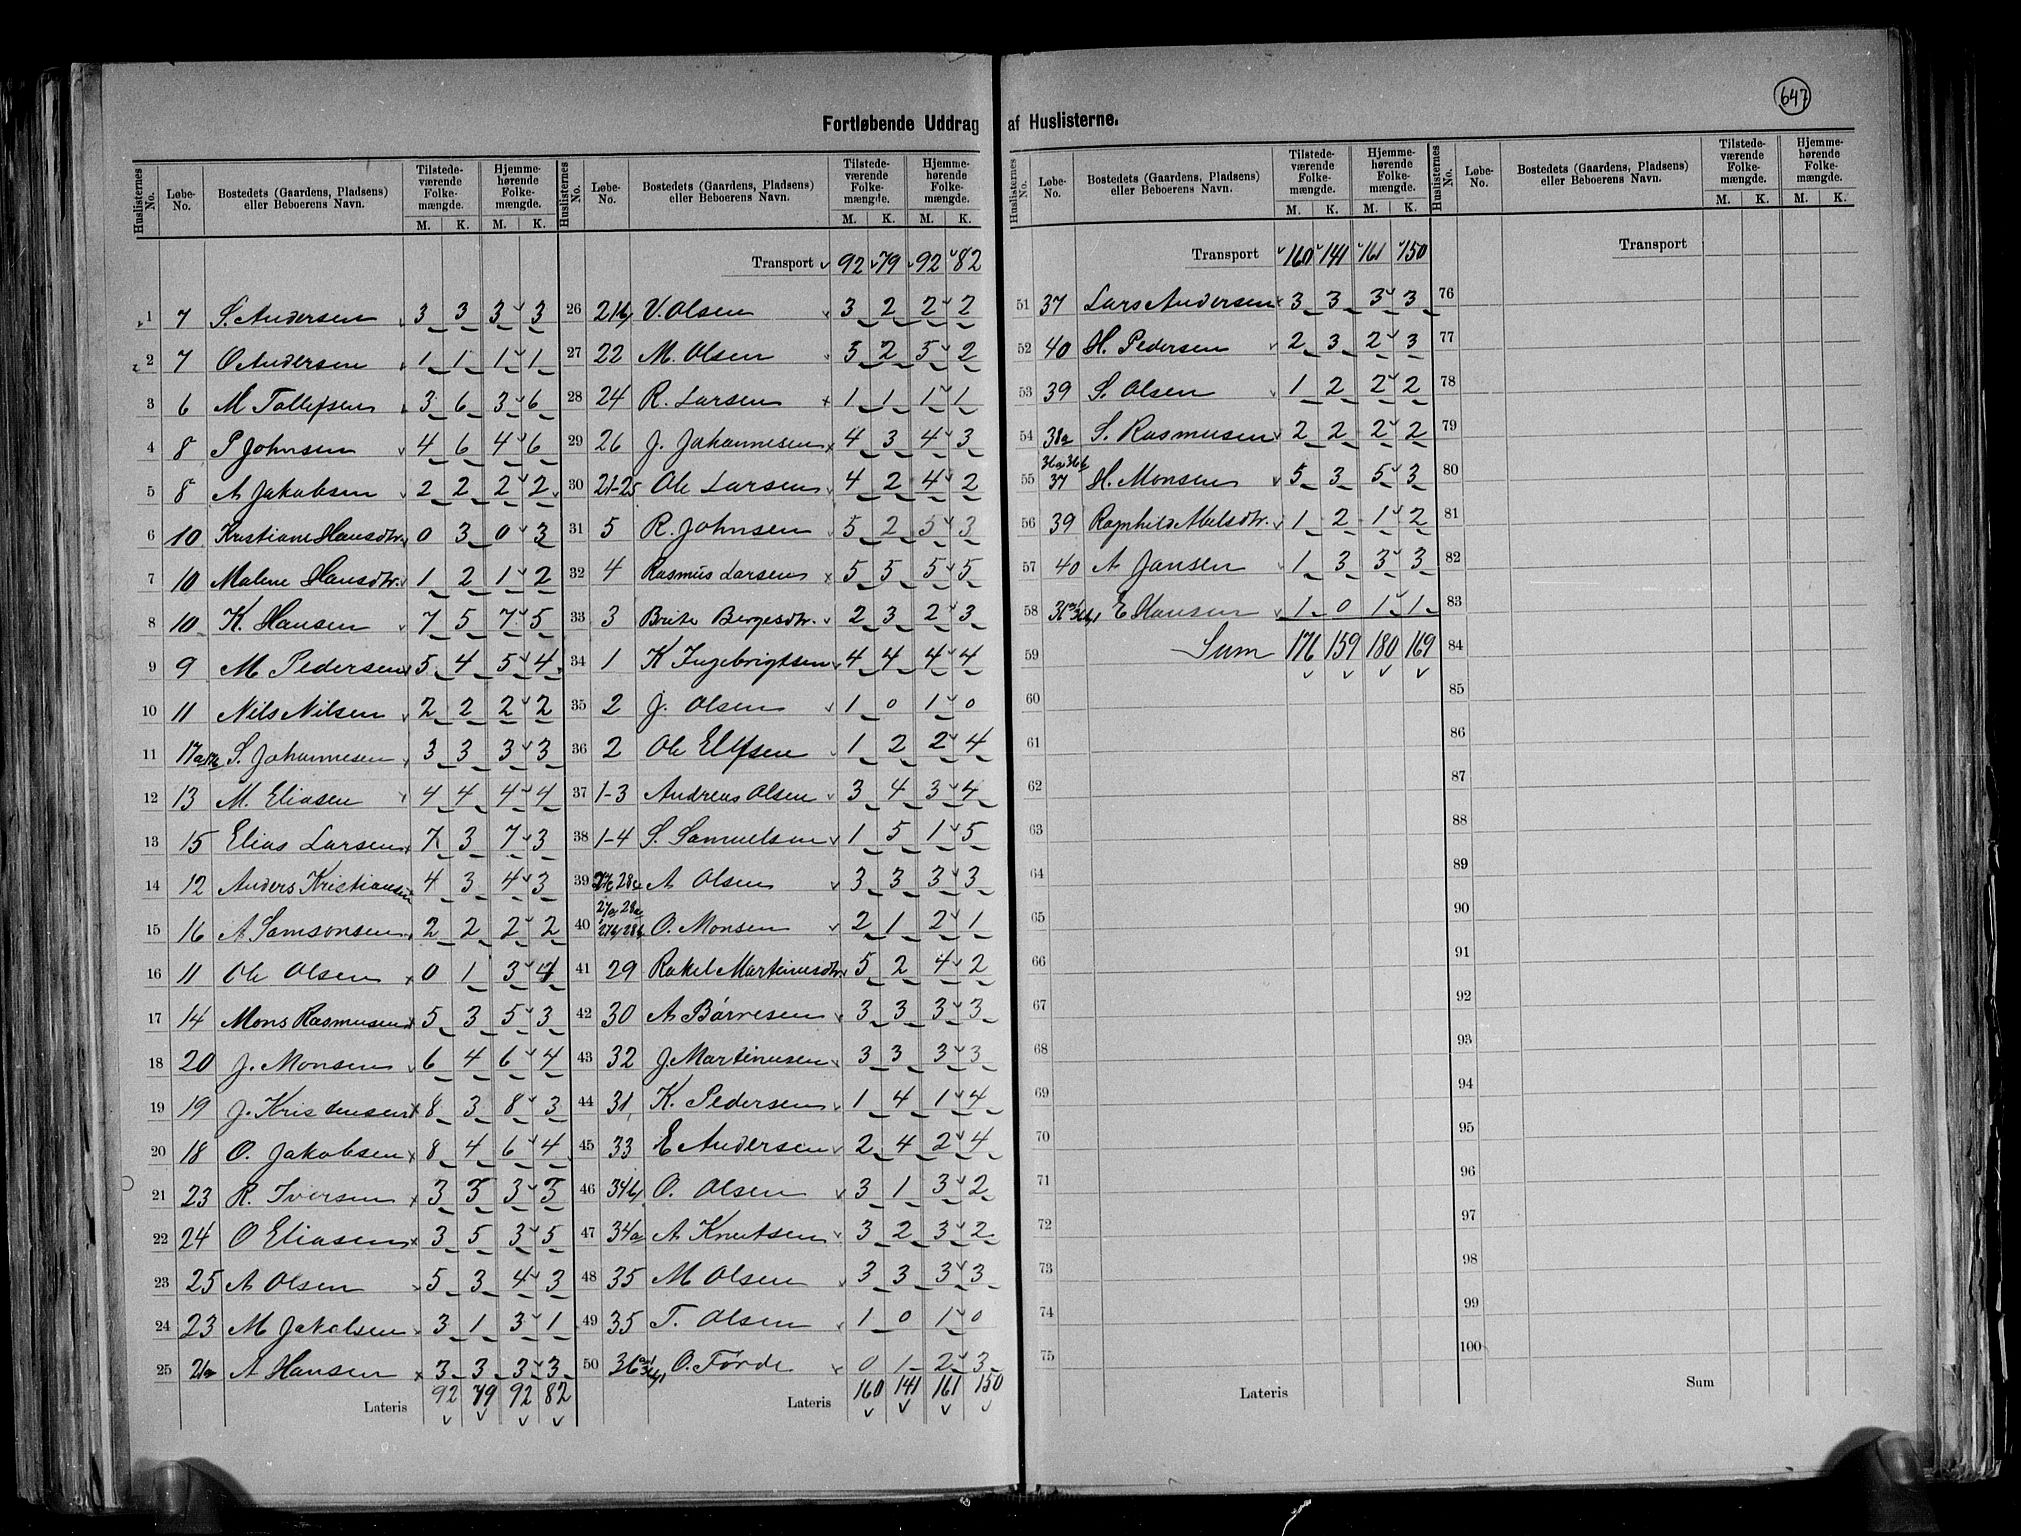 647
Fortløbende Uddrag af Huslisterne.
Huslisternes No. Løbe-No. Bostedets (Gaardens, Pladsens) eller Beboerens Navn. Tilstedeværende Folkemængde. M. K. Hjemmehørende Folkemængde. M. K.
1 7 S. Andersen 3 3 3 3
2 7 O Andersen 1 1 1 1
3 6 M Tollefsen 3 6 3 6
4 8 P Johnsen 4 6 4 6
5 8 A Jakobsen 2 2 2 2
6 10 Kristiane Hansdtr. 0 3 0 3
7 10 Malene Hansdtr. 1 2 1 2
8 10 K. Hansen 7 5 7 5
9 9 M Pedersen 5 4 5 4
10 11 Nils Nilsen 2 2 2 2
11 17a 17b S. Johannesen 3 3 3 3
12 13 M. Eliasen 4 4 4 4
13 15 Elias Larsen 7 3 7 3
14 12 Anders Kristiansen 4 3 4 3
15 16 A Samsonsen 2 2 2 2
16 11 Ole Olsen 0 1 3 4
17 14 Mons Rasmusen 5 3 5 3
18 20 J. Monsen 6 4 6 4
19 19 J. Kristensen 8 3 8 3
20 18 O. Jakobsen 8 4 6 4
21 23 R. Iversen 3 5 3 5
22 24 O Eliasen 3 5 3 5
23 25 A Olsen 5 3 4 3
24 23 M Jakobsen 3 1 3 1
25 21a A Hansen 3 3 3 3
Lateris 92 79 92 82
Huslisternes No. Løbe-No. Bostedets (Gaardens, Pladsens) eller Beboerens Navn. Tilstedeværende Folkemængde. M. K. Hjemmehørende Folkemængde. M. K.
Transport 92 79 92 82
26 21b V. Olsen 3 2 2 2
27 22 M. Olsen 5 2 5 2
28 24 R. Larsen 1 1 1 1
29 26 J. Johannesen 4 3 4 3
30 21-25 Ole Larsen 4 2 4 2
31 5 R. Johnsen 5 2 5 3
32 4 Rasmus Larsen 5 5 5 5
33 3 Brite Bergesdtr. 2 3 2 3
34 1 K Ingebrigtsen 4 4 4 4
35 2 J. Olsen 1 0 1 0
36 2 Ole Ellfsen 1 2 2 4
37 1-3 Andreas Olsen 3 4 3 4
38 1-4 S. Samuelsen 1 5 1 5
39 27b 28a A Olsen 3 3 3 3
40 27a 28a 27b 28b O. Monsen 2 1 2 1
41 29 Rakel Martinusdtr 5 2 4 2
42 30 A Børvesen 3 3 3 3
43 32 J. Martinusen 3 3 3 3
44 31 K. Pedersen 1 4 1 4
45 33 E Andersen 2 4 2 4
46 34b O. Olsen 3 1 3 2
47 34a A Knutsen 3 2 3 2
48 35 M Olsen 3 3 3 3
49 35 T. Olsen 1 0 1 0
50 36 O. Førde 0 1 2 3
Lateris 160 141 161 150
Huslisternes No. Løbe-No. Bostedets (Gaardens, Pladsens) eller Beboerens Navn. Tilstedeværende Folkemængde. M. K. Hjemmehørende Folkemængde. M. K.
Transport 160 141 161 150
51 37 Lars Andersen 3 3 3 3
52 40 H. Pedersen 2 3 2 3
53 39 S. Olsen 1 2 2 2
54 38a S. Rasmusen 2 2 2 2
55 36a 36b 37 H. Monsen 5 3 5 3
56 39 Ragnhild Nilsdtr. 1 2 1 2
57 40 A Jansen 1 3 3 3
58 36 E Hansen 1 0 1 1
59 Sum 176 159 180 169
60
61
62
63
64
65
66
67
68
69
70
71
72
73
74
75
Lateris
Huslisternes No. Løbe-No. Bostedets (Gaardens, Pladsens) eller Beboerens Navn. Tilstedeværende Folkemængde. M. K. Hjemmehørende Folkemængde. M. K.
Transport
76
77
78
79
80
81
82
83
84
85
86
87
88
89
90
91
92
93
94
95
96
97
98
99
100
Sum